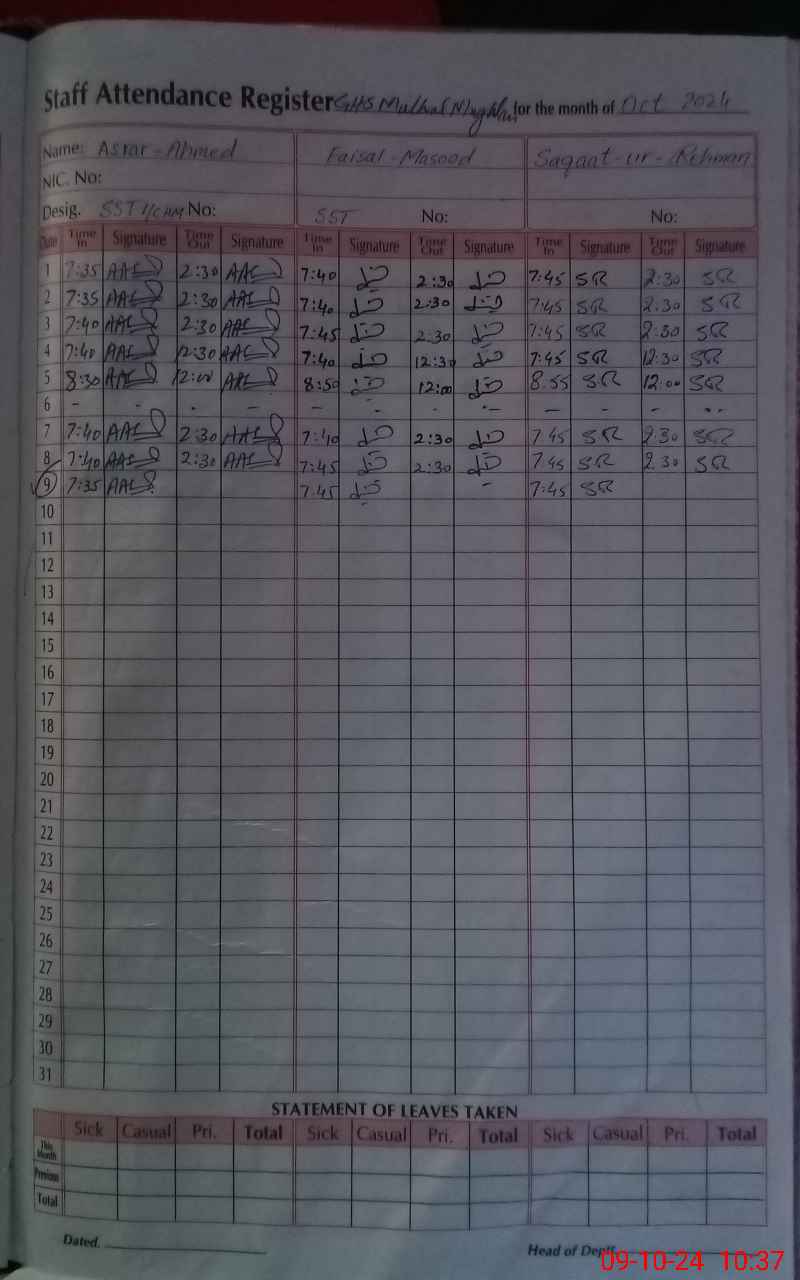 Staff Attendance Register GHS for the month of Oct 2024
Name: Asrar-Ahmed Faisal-Masood Saqaat-ur-Rehman
NIC. No:
Desig. SST No: SST No: No:
Date Time In Signature Time Out Signature Time In Signature Time Out Signature Time In Signature Time Out Signature
1 7:35 2:30 7:40 2:30 7:45 SR 2:30 SR
2 7:35 2:30 7:40 2:30 7:45 SR 2:30 SR
3 7:40 2:30 7:45 2:30 7:45 SR 2:30 SR
4 7:40 12:30 7:40 12:30 7:45 SR 12:30 SR
5 8:30 12:00 8:50 12:00 8.55 SR 12:00 SR
6 - - - - - - - - - -
7 7:40 2:30 7:40 2:30 7 45 SR 2:30 SR
8 7:40 2:30 7:45 2:30 7:45 SR 2.30 SR
9 7:35 7:45 - 7:45 SR
10
11
12
13
14
15
16
17
18
19
20
21
22
23
24
25
26
27
28
29
30
31
STATEMENT OF LEAVES TAKEN
Sick Casual Pri. Total Sick Casual Pri. Total Sick Casual Pri. Total
This Month
Previous
Total
Dated.
Head of Deptt.
09-10-24 10:37